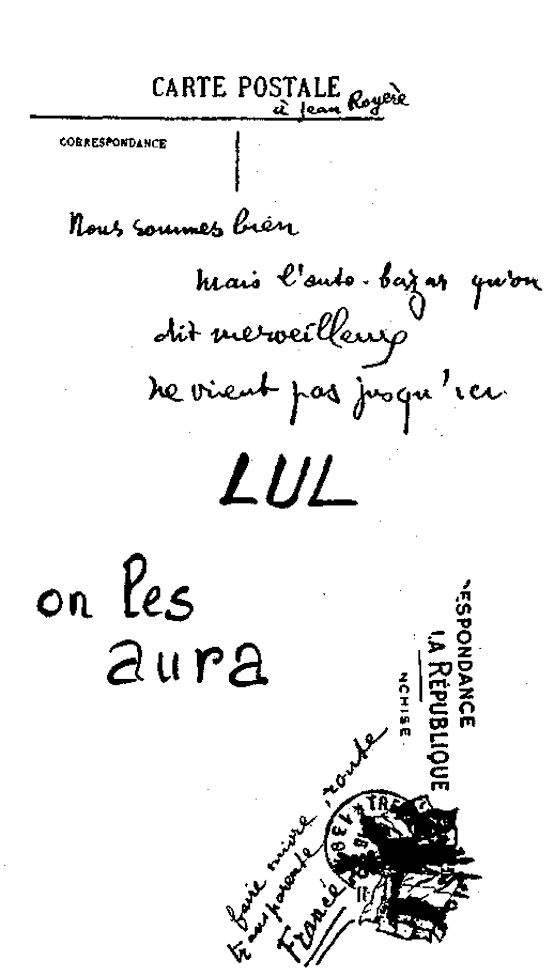 CARTE POSTALE
à Jean Royère
CORRESPONDANCE
Nous sommes bien
mais l'auto-bazar qu'on
dit merveilleux
ne vient pas jusqu'ici
LUL
on les
aura
ESPONDANCE
LA RÉPUBLIQUE
NCHISE
faire suivre, route
transparente
TRE
138